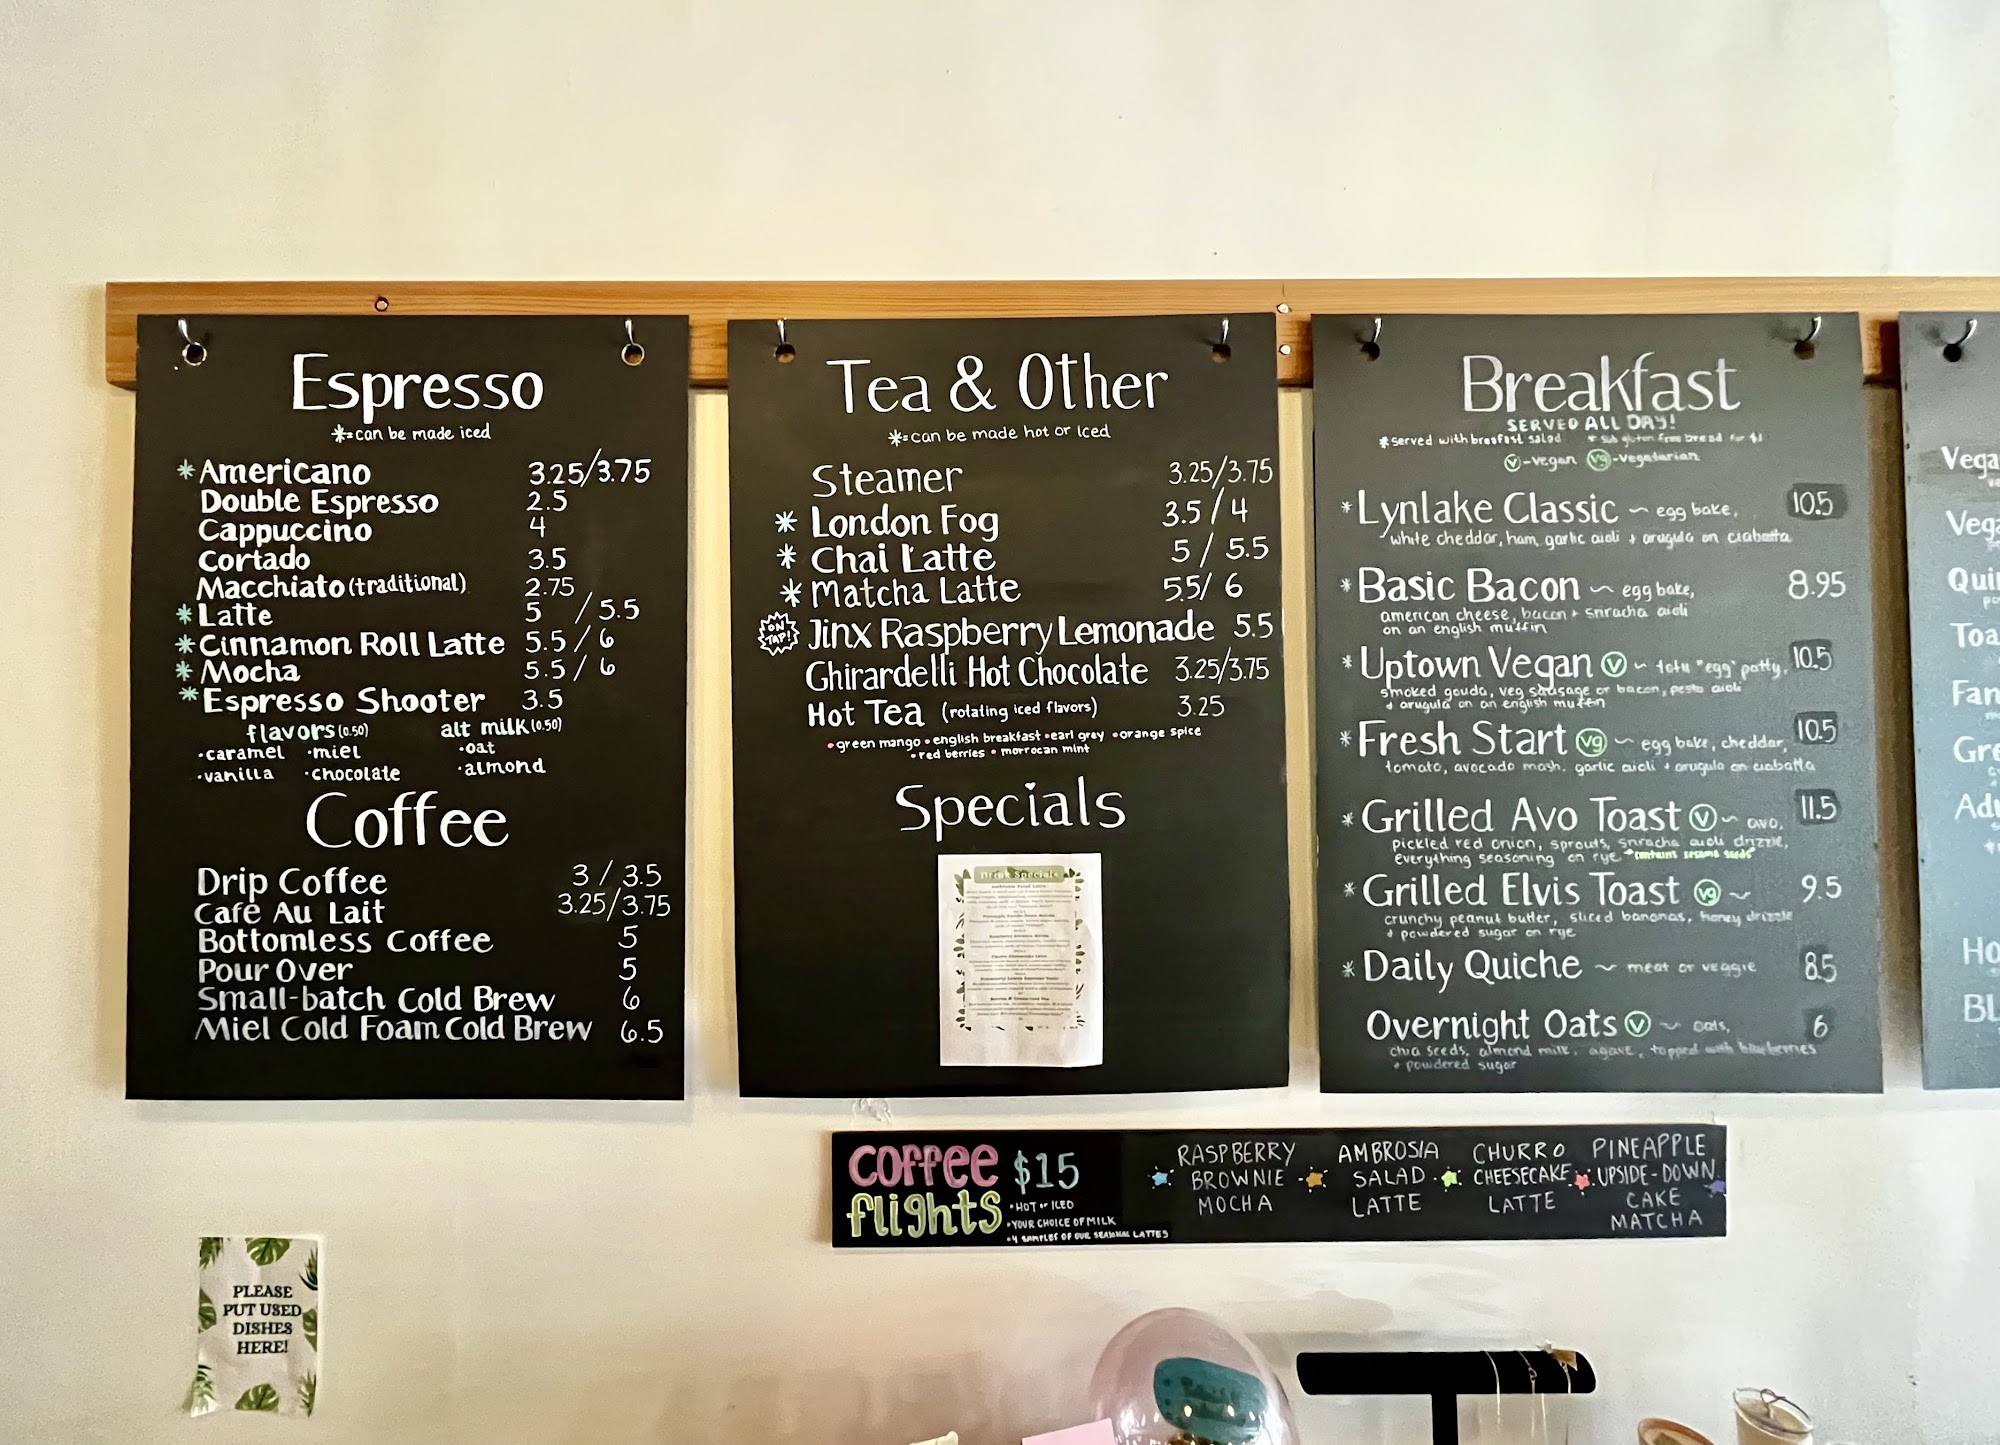 Espresso
*=can be made iced
*Americano 3.25/3.75
Double Espresso 2.5
Cappuccino 4
Cortado 3.5
Macchiato (traditional) 2.75
*Latte 5 / 5.5
*Cinnamon Roll Latte 5.5 / 6
*Mocha 5.5 / 6
*Espresso Shooter 3.5
flavors (0.50) alt milk (0.50)
•caramel •miel •oat
•vanilla •chocolate •almond
Coffee
Drip Coffee 3 / 3.5
Café Au Lait 3.25/3.75
Bottomless Coffee 5
Pour Over 5
Small-batch Cold Brew 6
Miel Cold Foam Cold Brew 6.5
Tea & Other
*=can be made hot or Iced
Steamer 3.25/3.75
* London Fog 3.5 / 4
* Chai Latte 5 / 5.5
* Matcha Latte 5.5/ 6
ON TAP! Jinx Raspberry Lemonade 5.5
Ghirardelli Hot Chocolate 3.25/3.75
Hot Tea (rotating iced flavors) 3.25
•green mango •english breakfast •earl grey •orange spice
•red berries •morrocan mint
Specials
Drink Specials
Breakfast
SERVED ALL DAY!
*served with breakfast salad *sub gluten free bread for $1
V-vegan vg-vegetarian
*Lynlake Classic ~ egg bake, 10.5
white cheddar, ham, garlic aioli + arugula on ciabatta
*Basic Bacon ~ egg bake, 8.95
american cheese, bacon + sriracha aioli
on an english muffin
*Uptown Vegan V ~ tofu "egg" patty, 10.5
smoked gouda, veg sausage or bacon, pesto aioli
+ arugula on an english muffin
*Fresh Start vg ~ egg bake, cheddar, 10.5
tomato, avocado mash, garlic aioli + arugula on ciabatta
*Grilled Avo Toast V ~ avo, 11.5
pickled red onion, sprouts, sriracha aioli drizzle,
everything seasoning on rye *contains sesame seeds*
*Grilled Elvis Toast vg ~ 9.5
crunchy peanut butter, sliced bananas, honey drizzle
+ powdered sugar on rye
*Daily Quiche ~ meat or veggie 8.5
Overnight Oats V ~ oats, 6
chia seeds, almond milk, agave, topped with blueberries
+ powdered sugar
coffee flights $15
•HOT or ICED
•YOUR CHOICE OF MILK
•4 SAMPLES OF OUR SEASONAL LATTES
RASPBERRY
BROWNIE
MOCHA
AMBROSIA
SALAD
LATTE
CHURRO
CHEESECAKE
LATTE
PINEAPPLE
UPSIDE-DOWN
CAKE
MATCHA
PLEASE
PUT USED
DISHES
HERE!